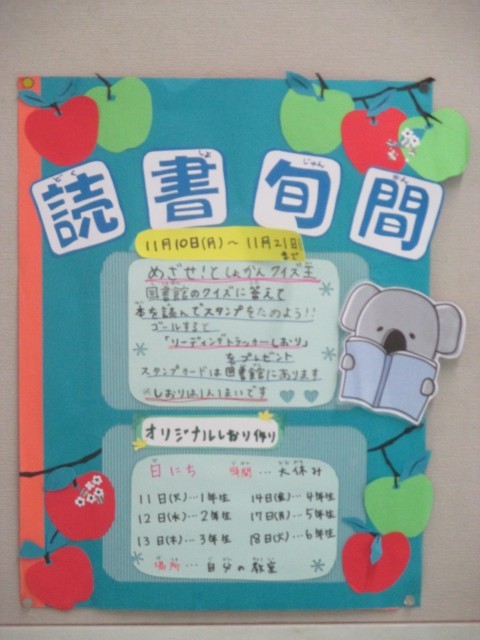 読書旬間
どく しょ じゅん かん
11月10日(月)～11月21日まで
めざせ！としょかんクイズ王
図書館のクイズに答えて
本を読んでスタンプをためよう！！
ゴールすると
「リーディングトラッカーしおり」
をプレゼント
スタンプカードは図書館にあります
※しおりは1人1まいです
オリジナルしおり作り
日にち 時間…大休み
11日(火)…1年生 14日(金)…4年生
12日(水)…2年生 17日(月)…5年生
13日(木)…3年生 18日(火)…6年生
場所…自分の教室